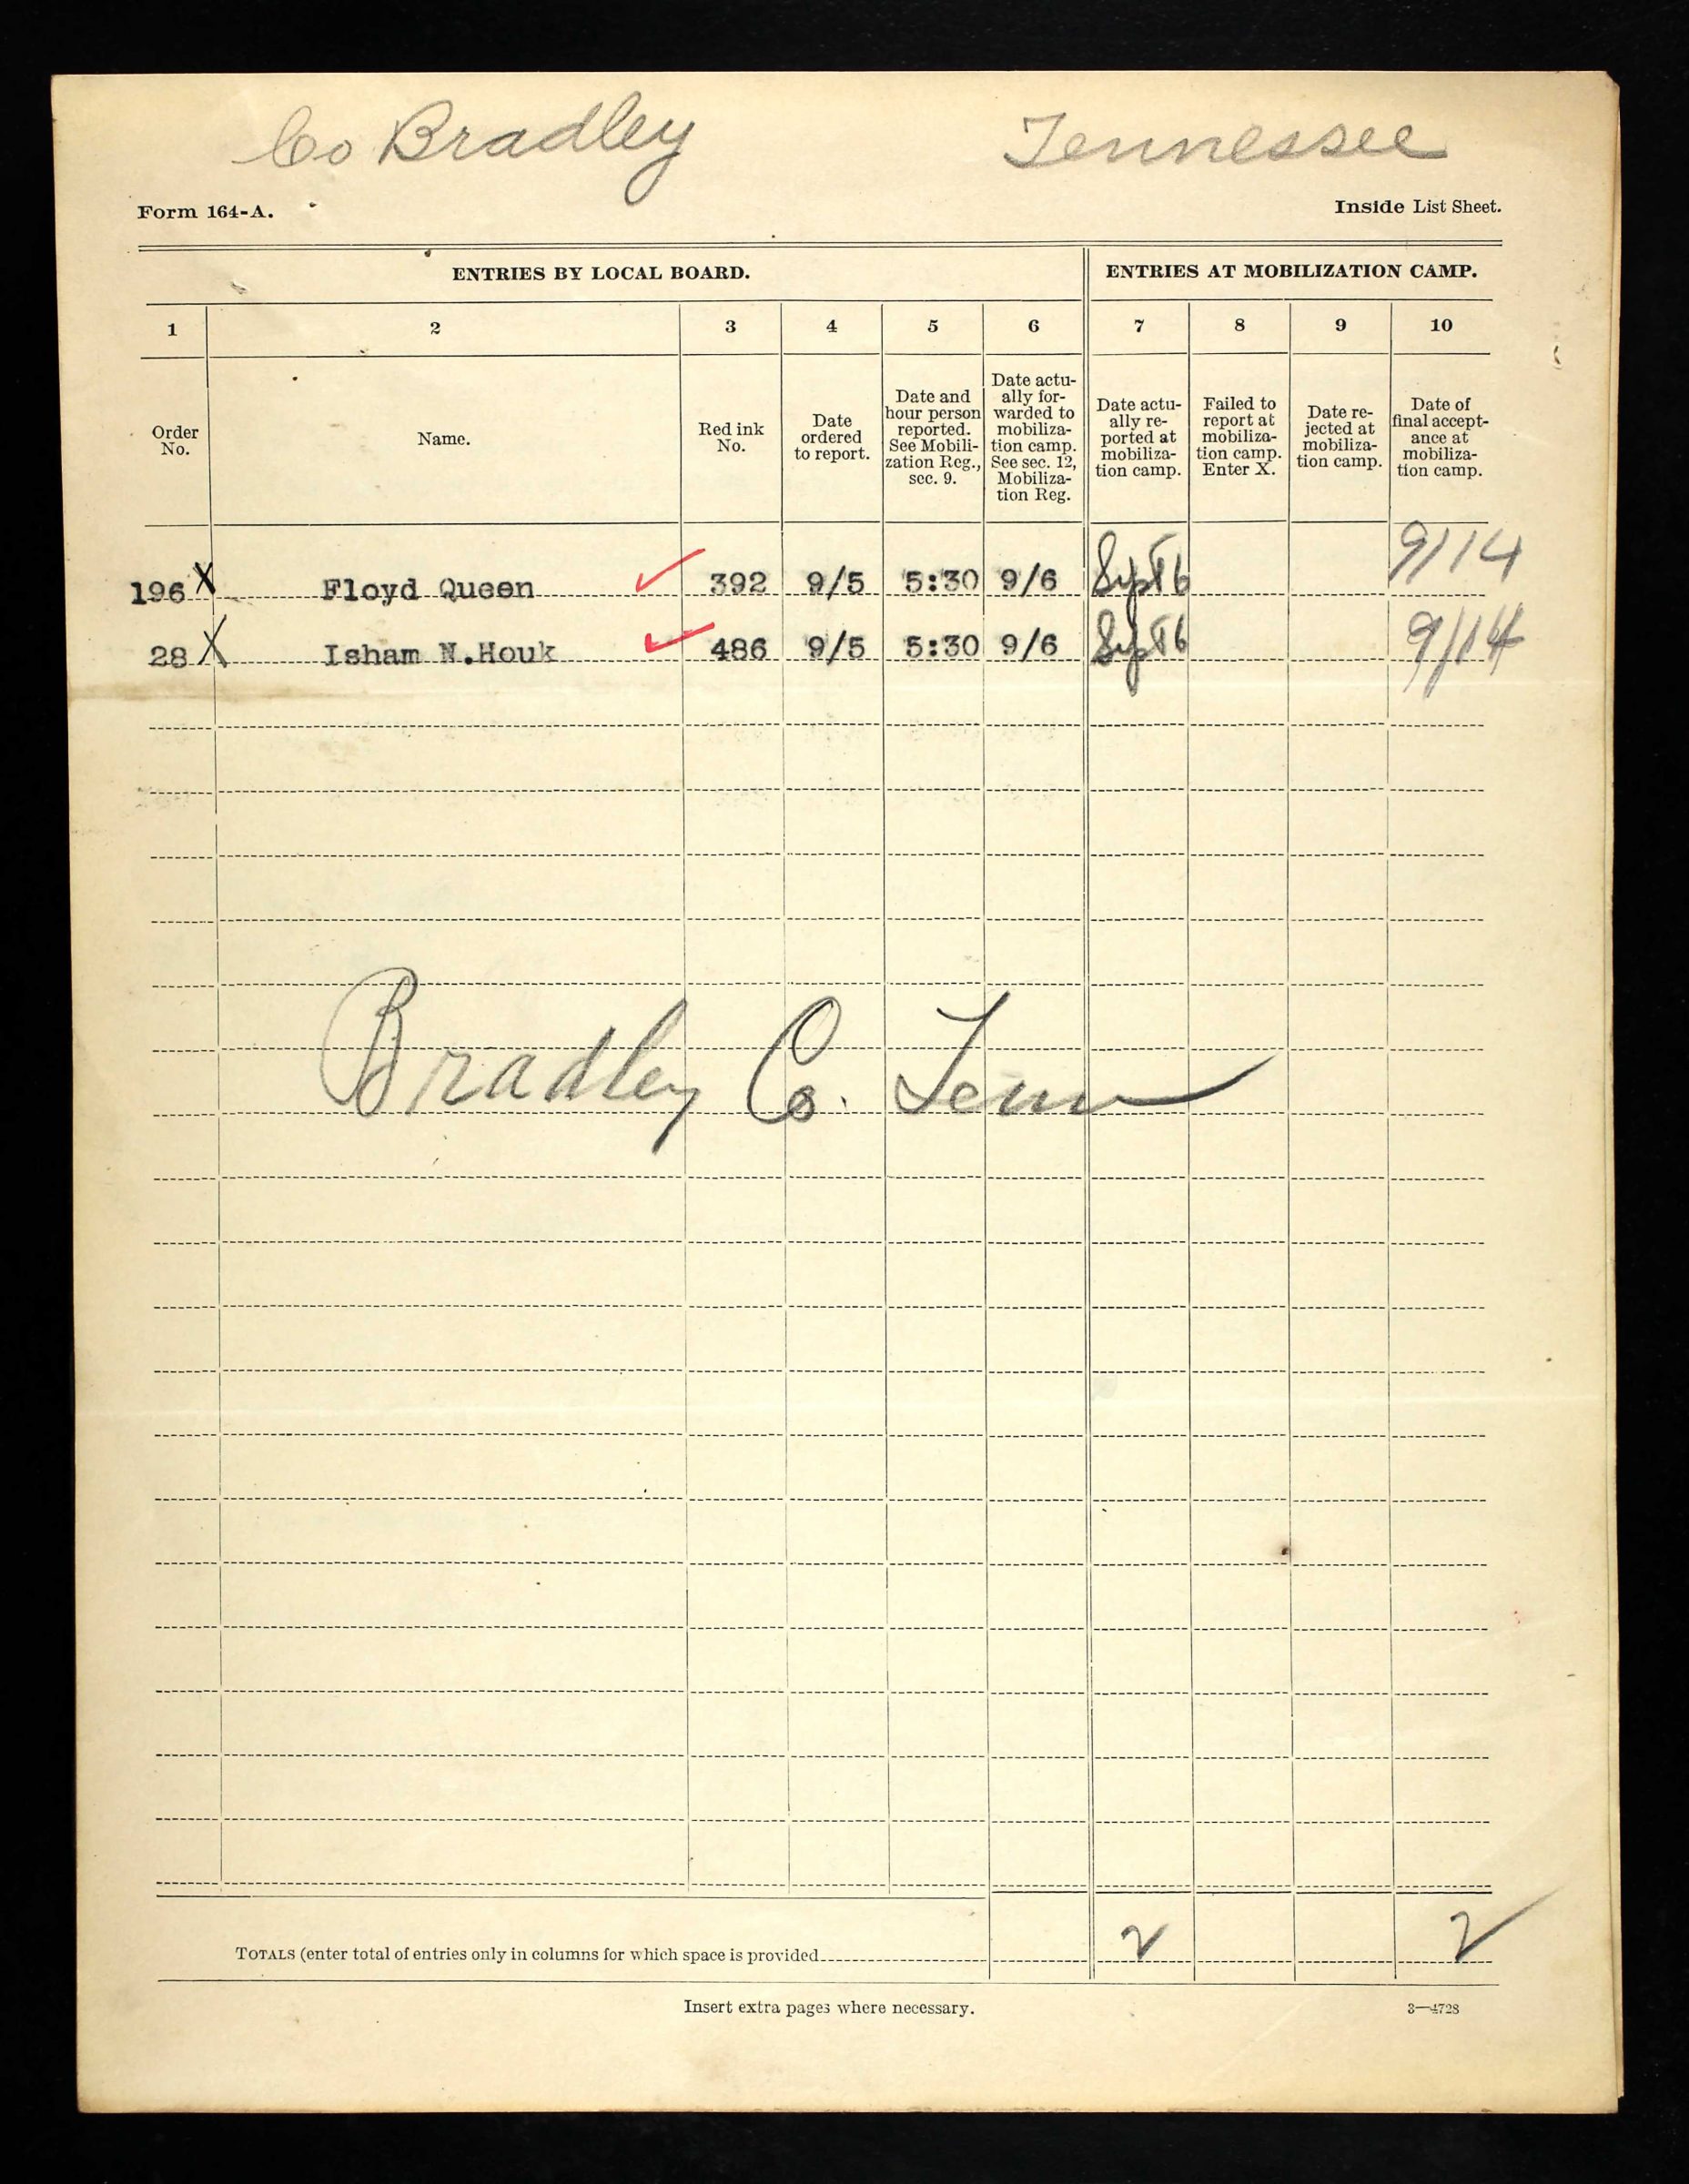 Co Bradley Tennessee
Form 164-A. Inside List Sheet.
ENTRIES BY LOCAL BOARD. ENTRIES AT MOBILIZATION CAMP.
1 2 3 4 5 6 7 8 9 10
Order No.
Name.
Red ink No.
Date ordered to report.
Date and hour person reported. See Mobili-zation Reg., sec. 9.
Date actu-ally for-warded to mobiliza-tion camp. See sec. 12, Mobiliza-tion Reg.
Date actu-ally re-ported at mobiliza-tion camp.
Failed to report at mobiliza-tion camp. Enter X.
Date re-jected at mobiliza-tion camp.
Date of final accept-ance at mobiliza-tion camp.
196 X Floyd Queen ✓ 392 9/5 5:30 9/6 Sept 6 9/14
28 X Isham N.Houk ✓ 486 9/5 5:30 9/6 Sept 6 9/14
Bradley Co. Tenn
TOTALS (enter total of entries only in columns for which space is provided 2 2
Insert extra pages where necessary. 3—4728